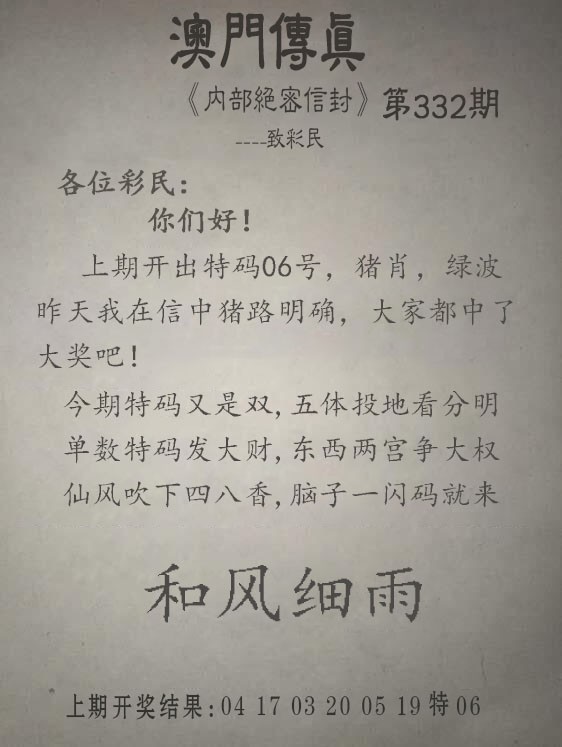 澳門傳眞
《内部絕密信封》第332期
----致彩民
各位彩民：
你们好！
上期开出特码06号，猪肖，绿波
昨天我在信中猪路明确，大家都中了
大奖吧！
今期特码又是双,五体投地看分明
单数特码发大财,东西两宫争大权
仙风吹下四八香,脑子一闪码就来
和风细雨
上期开奖结果:04 17 03 20 05 19 特 06